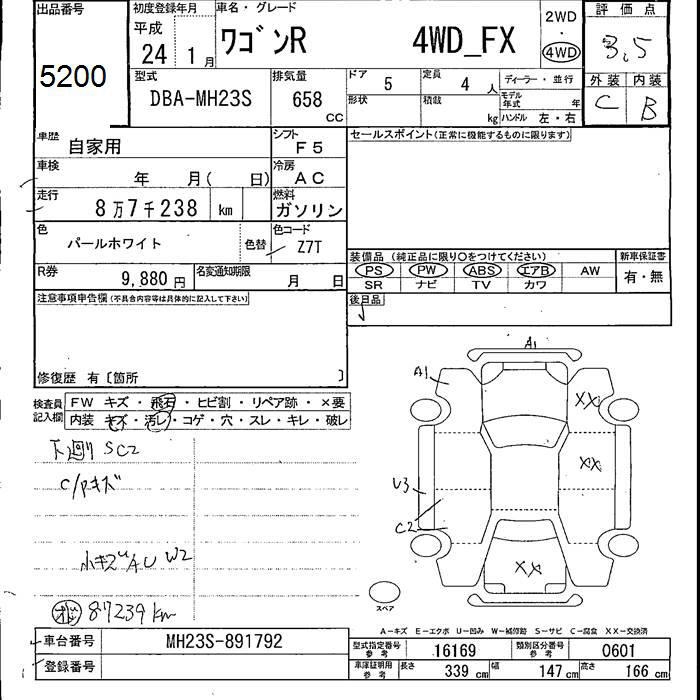 出品番号
5200
初度登録年月
平成
24 1月
車名・グレード
ワゴンR 4WD_FX
2WD
・
4WD
評価点
3.5
外装 内装
C B
型式
DBA-MH23S
排気量
658 CC
ドア 5
定員 4人
ディーラー・並行
形状
積載 kg
モデル年式 年
ハンドル 左・右
車歴 自家用
シフト F5
車検 年 月( 日)
冷房 AC
走行 8万7千238 km
燃料 ガソリン
色 パールホワイト
色替
色コード Z7T
R券 9,880円
名変通知期限 月 日
セールスポイント(正常に機能するものに限ります)
装備品 (純正品に限り○をつけてください)
新車保証書
PS PW ABS エアB AW
有・無
SR ナビ TV カワ
後日品
注意事項申告欄(不具合内容等は具体的に記入して下さい)
修復歴 有〔箇所 〕
検査員記入欄
FW キズ・飛石・ヒビ割・リペア跡・×要
内装 キズ・汚レ・コゲ・穴・スレ・キレ・破レ
下廻り SC2
C/Pキズ
小キズAU W2
87239km
A1
A1
XX
XX
U3
C2
XX
スペア
A-キズ E-エクボ U-凹み W-補修跡 S-サビ C-腐食 XX-交換済
車台番号 MH23S-891792
登録番号
型式指定番号 参考 16169
類別区分番号 参考 0601
車庫証明用 参考 長さ 339cm 幅 147cm 高さ 166cm